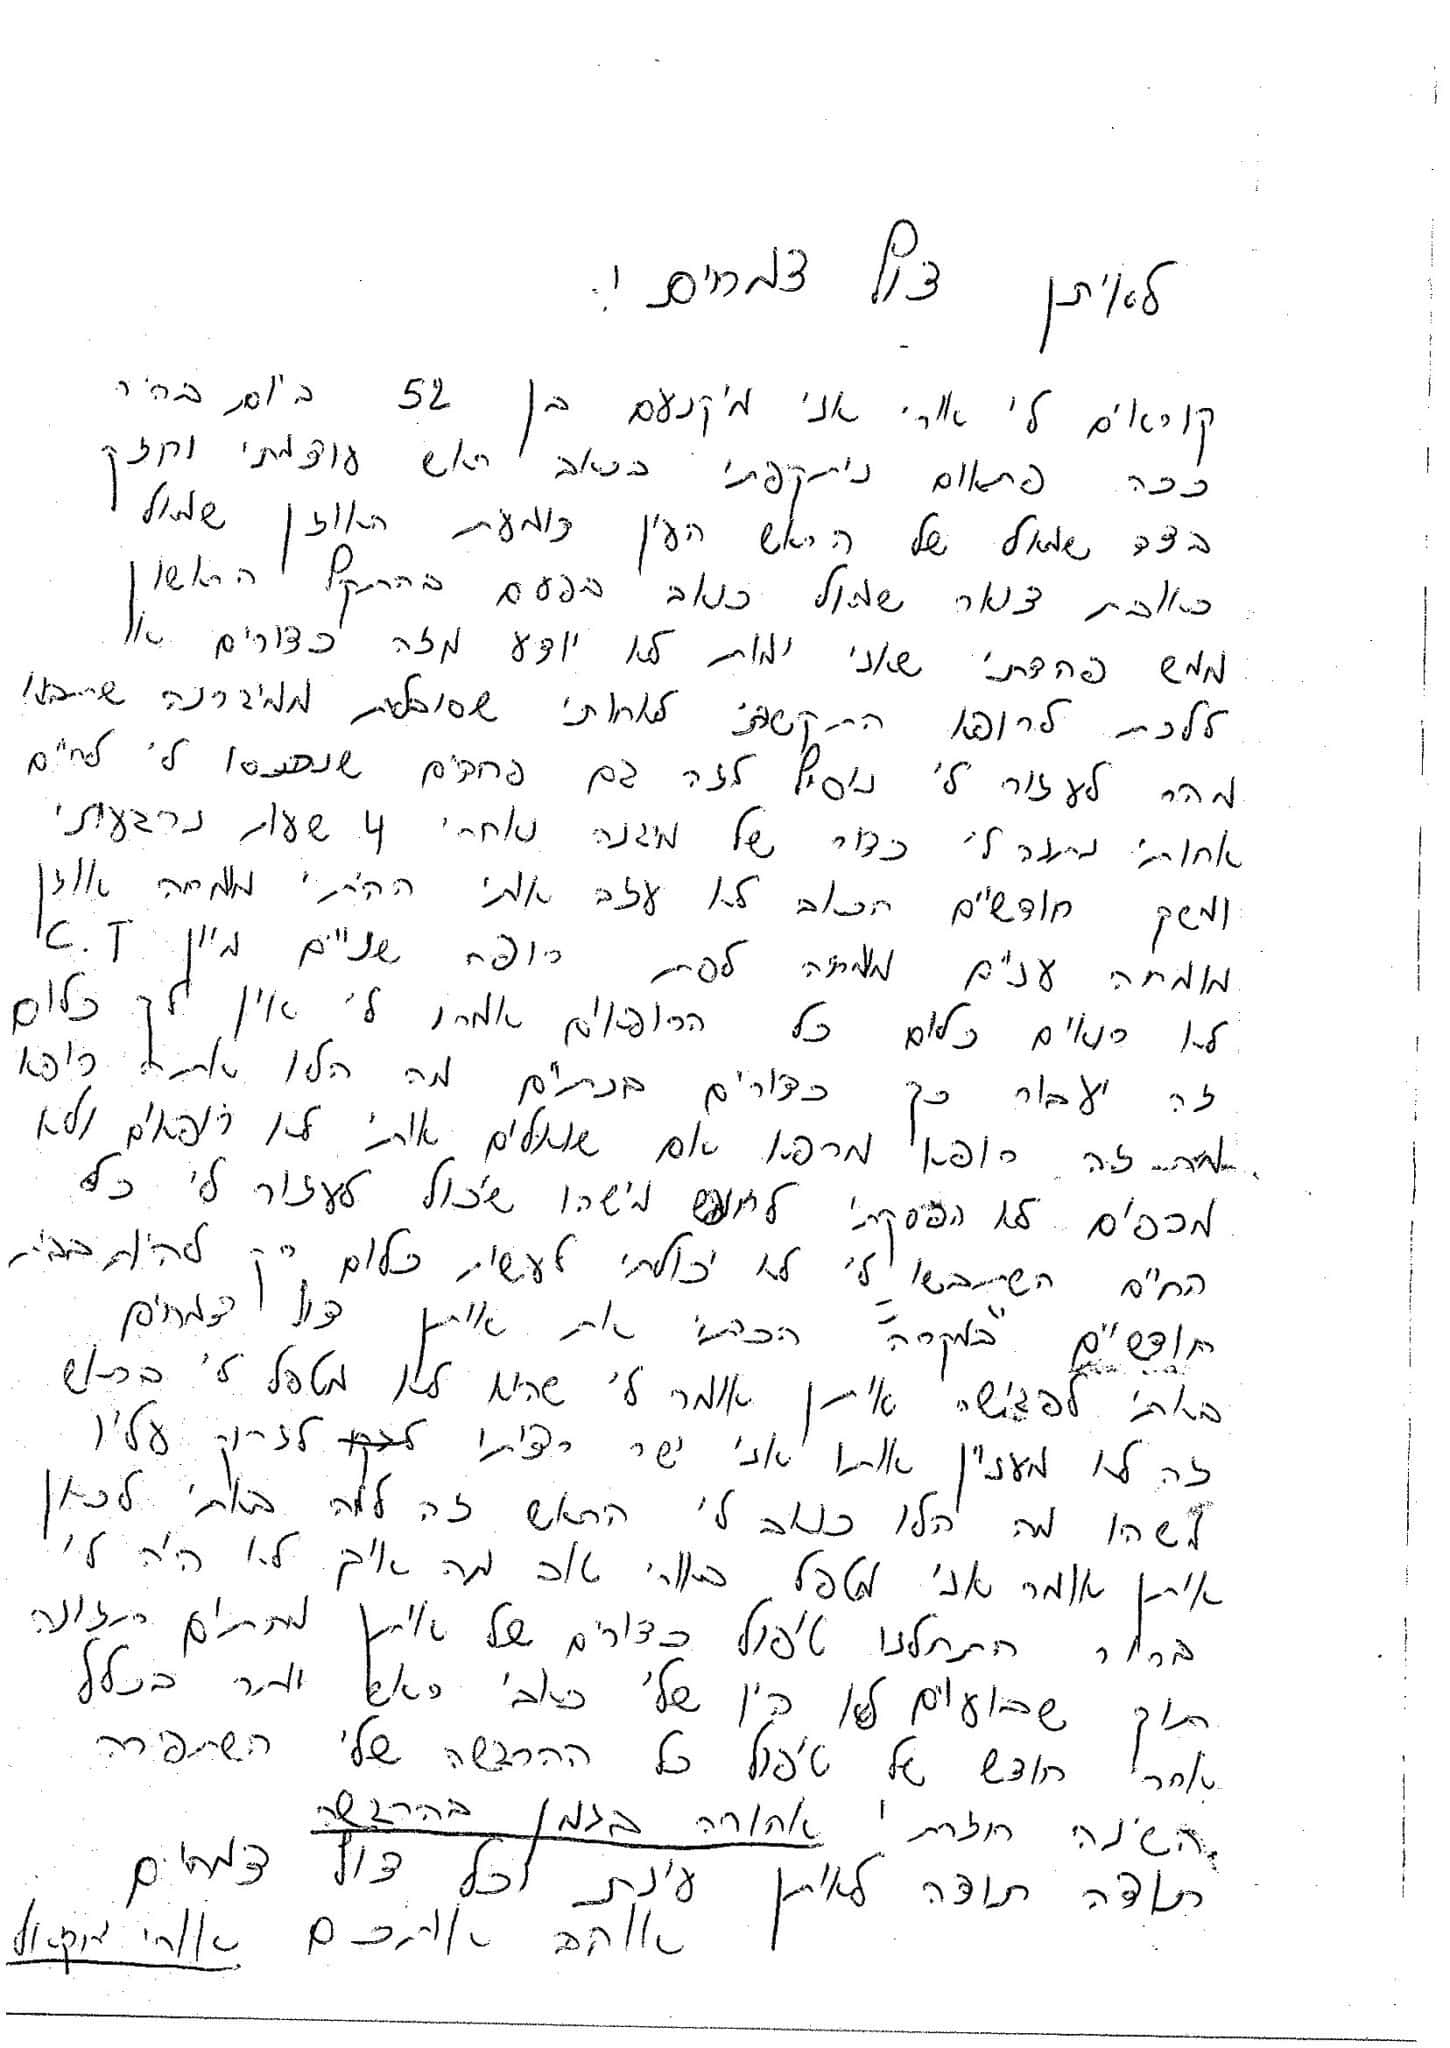 לאיתן צוף צמחים !.
קוראים לי אורי אני מיקנעם בן 52 ביום בהיר
ככה פתאום ניתקפתי בכאב ראש עוצמתי וחזק
בצד שמאל של הראש העין כמעת האוזן שמאל
כאבת צואר שמאל כואב בפעם בהתקף הראשון
ממש פחדתי שאני ימות לא יודע מזה כדורים או
ללכת לרופא התקשתי לאחותי שסובלת ממיגרנה שתבוא
מהר לעזור לי נוסיף לזה גם פחדים שנכנסו לי לחיים
אחותי נתנה לי כדור של מיגנה ואחרי 4 שעות נרגעתי
ומשך חודשיים הכאב לא עזב אותי הייתי מומחה אוזן
מומחה עניים מומחה לסת רופה שניים מיון C.T
לא רואים כלום כל הרופאים אמרו לי אין לך כלום
זה יעבור קח כדורים בנתיים מה הלו אתה רופא
מה זה רופא מרפא אם שואלים אותי לא רופאים ולא
מרפים לא הפסקתי לחפש מישהו שיכול לעזור לי כל
החיים השתבשו לי לא יכולתי לעשות כלום רק להיות בבית
חודשיים "במקרה" הכרתי את איתן צוף צמחים
באתי לפגישה איתן אומר לי שהיא לא מטפל לי בראש
זה לא מענין אותו אני ישר רציתי לזרוק עליו
משהו מה הלו כואב לי הראש זה למה באתי לכאן
איתן אומר אני מטפל באורי טוב מה איך לא היה לי
ברור התחלנו טיפול כדורים של איתן מתחים תזונה
תוך שבועים לא היו שלי כאבי ראש יותר בכלל
אחרי חודש של טיפול כל ההרגשה שלי השתפרה
השינה חזרתי אחורה בזמן בהרגשה
תודה תודה לאיתן עינת וכל צוף צמחים
אוהב אותכם אורי